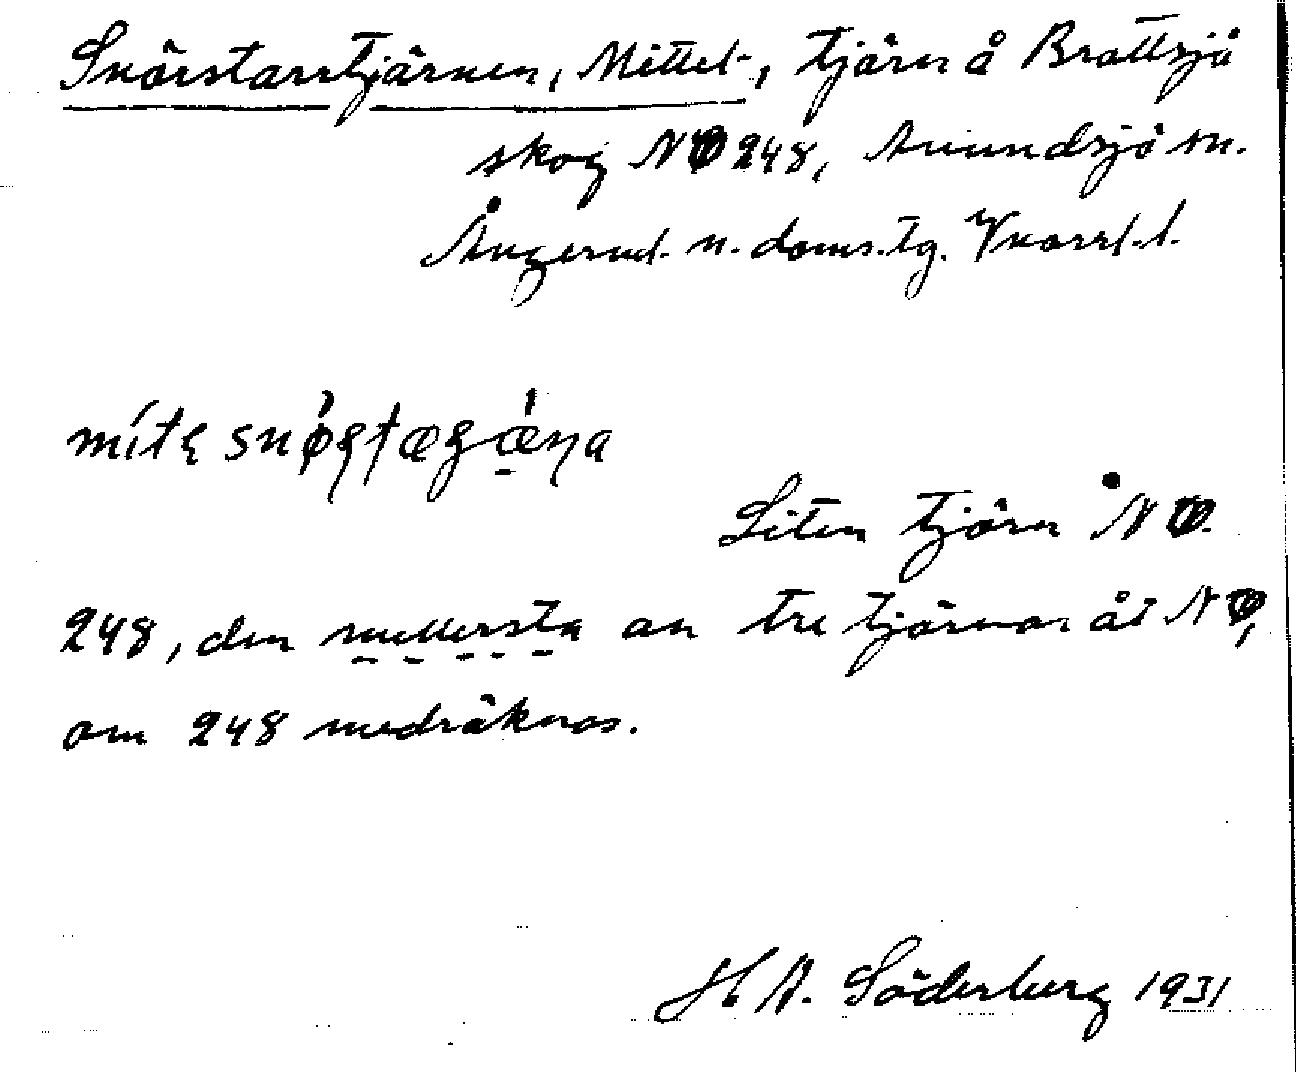 Snörstarrtjärnen, Mittel-, tjärn å Brattsjö
skog NO 248, Anundsjö sn.
Ångerml. n. doms.tg. Vnorrl. l.
Liten tjärn NO.
248, den mellersta av tre tjärnar åt NO,
om 248 medräknas.
H A. Söderberg 1931